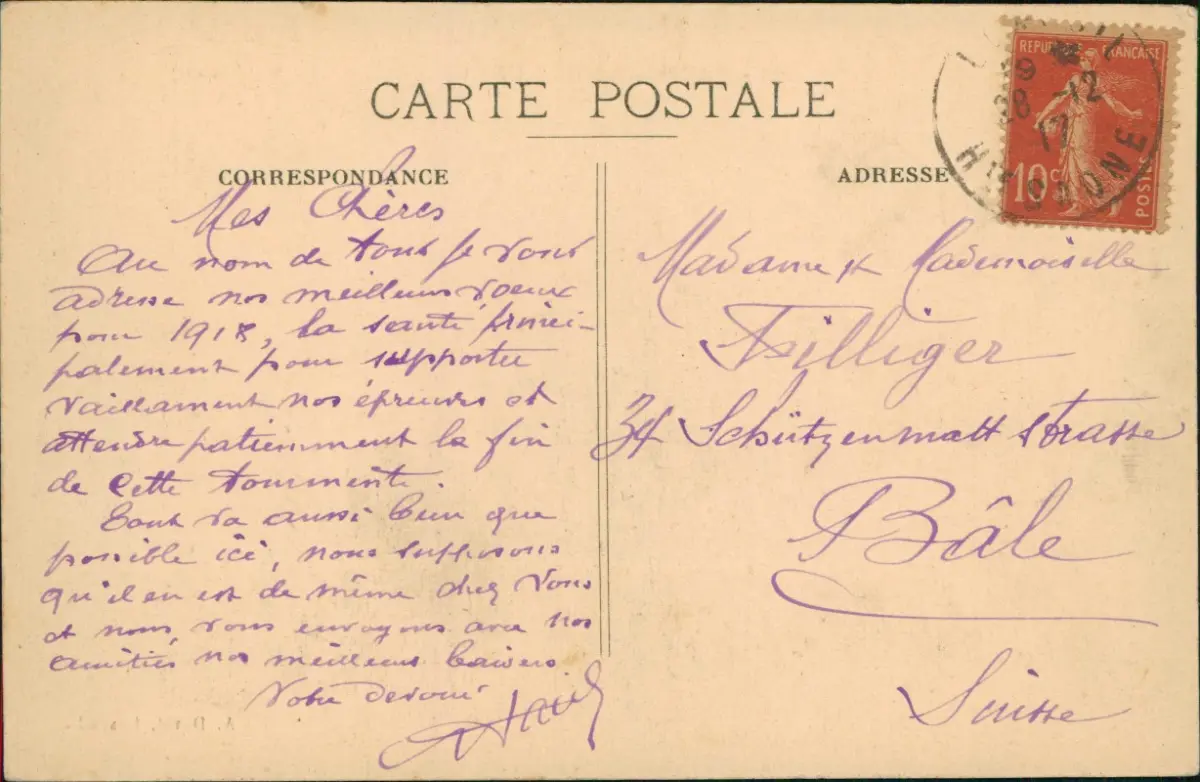 CARTE POSTALE
CORRESPONDANCE
Mes Chères
Au nom de tous je vous
adresse nos meilleurs voeux
pour 1918, la santé princi-
palement pour supporter
vaillament nos épreuves et
attendre patiemment la fin
de cette tourmente.
Tout va aussi bien que
possible ici, nous supposons
qu'il en est de même chez vous
et nous, vous envoyons avec nos
amitiés nos meilleurs baisers
Votre dévoué
ADRESSE
REPUBLIQUE FRANÇAISE
10c
POSTES
28 -12
17
Hte SAONE
Madame & Mademoiselle
Filliger
34 Schützenmatt strasse
Bâle
Suisse